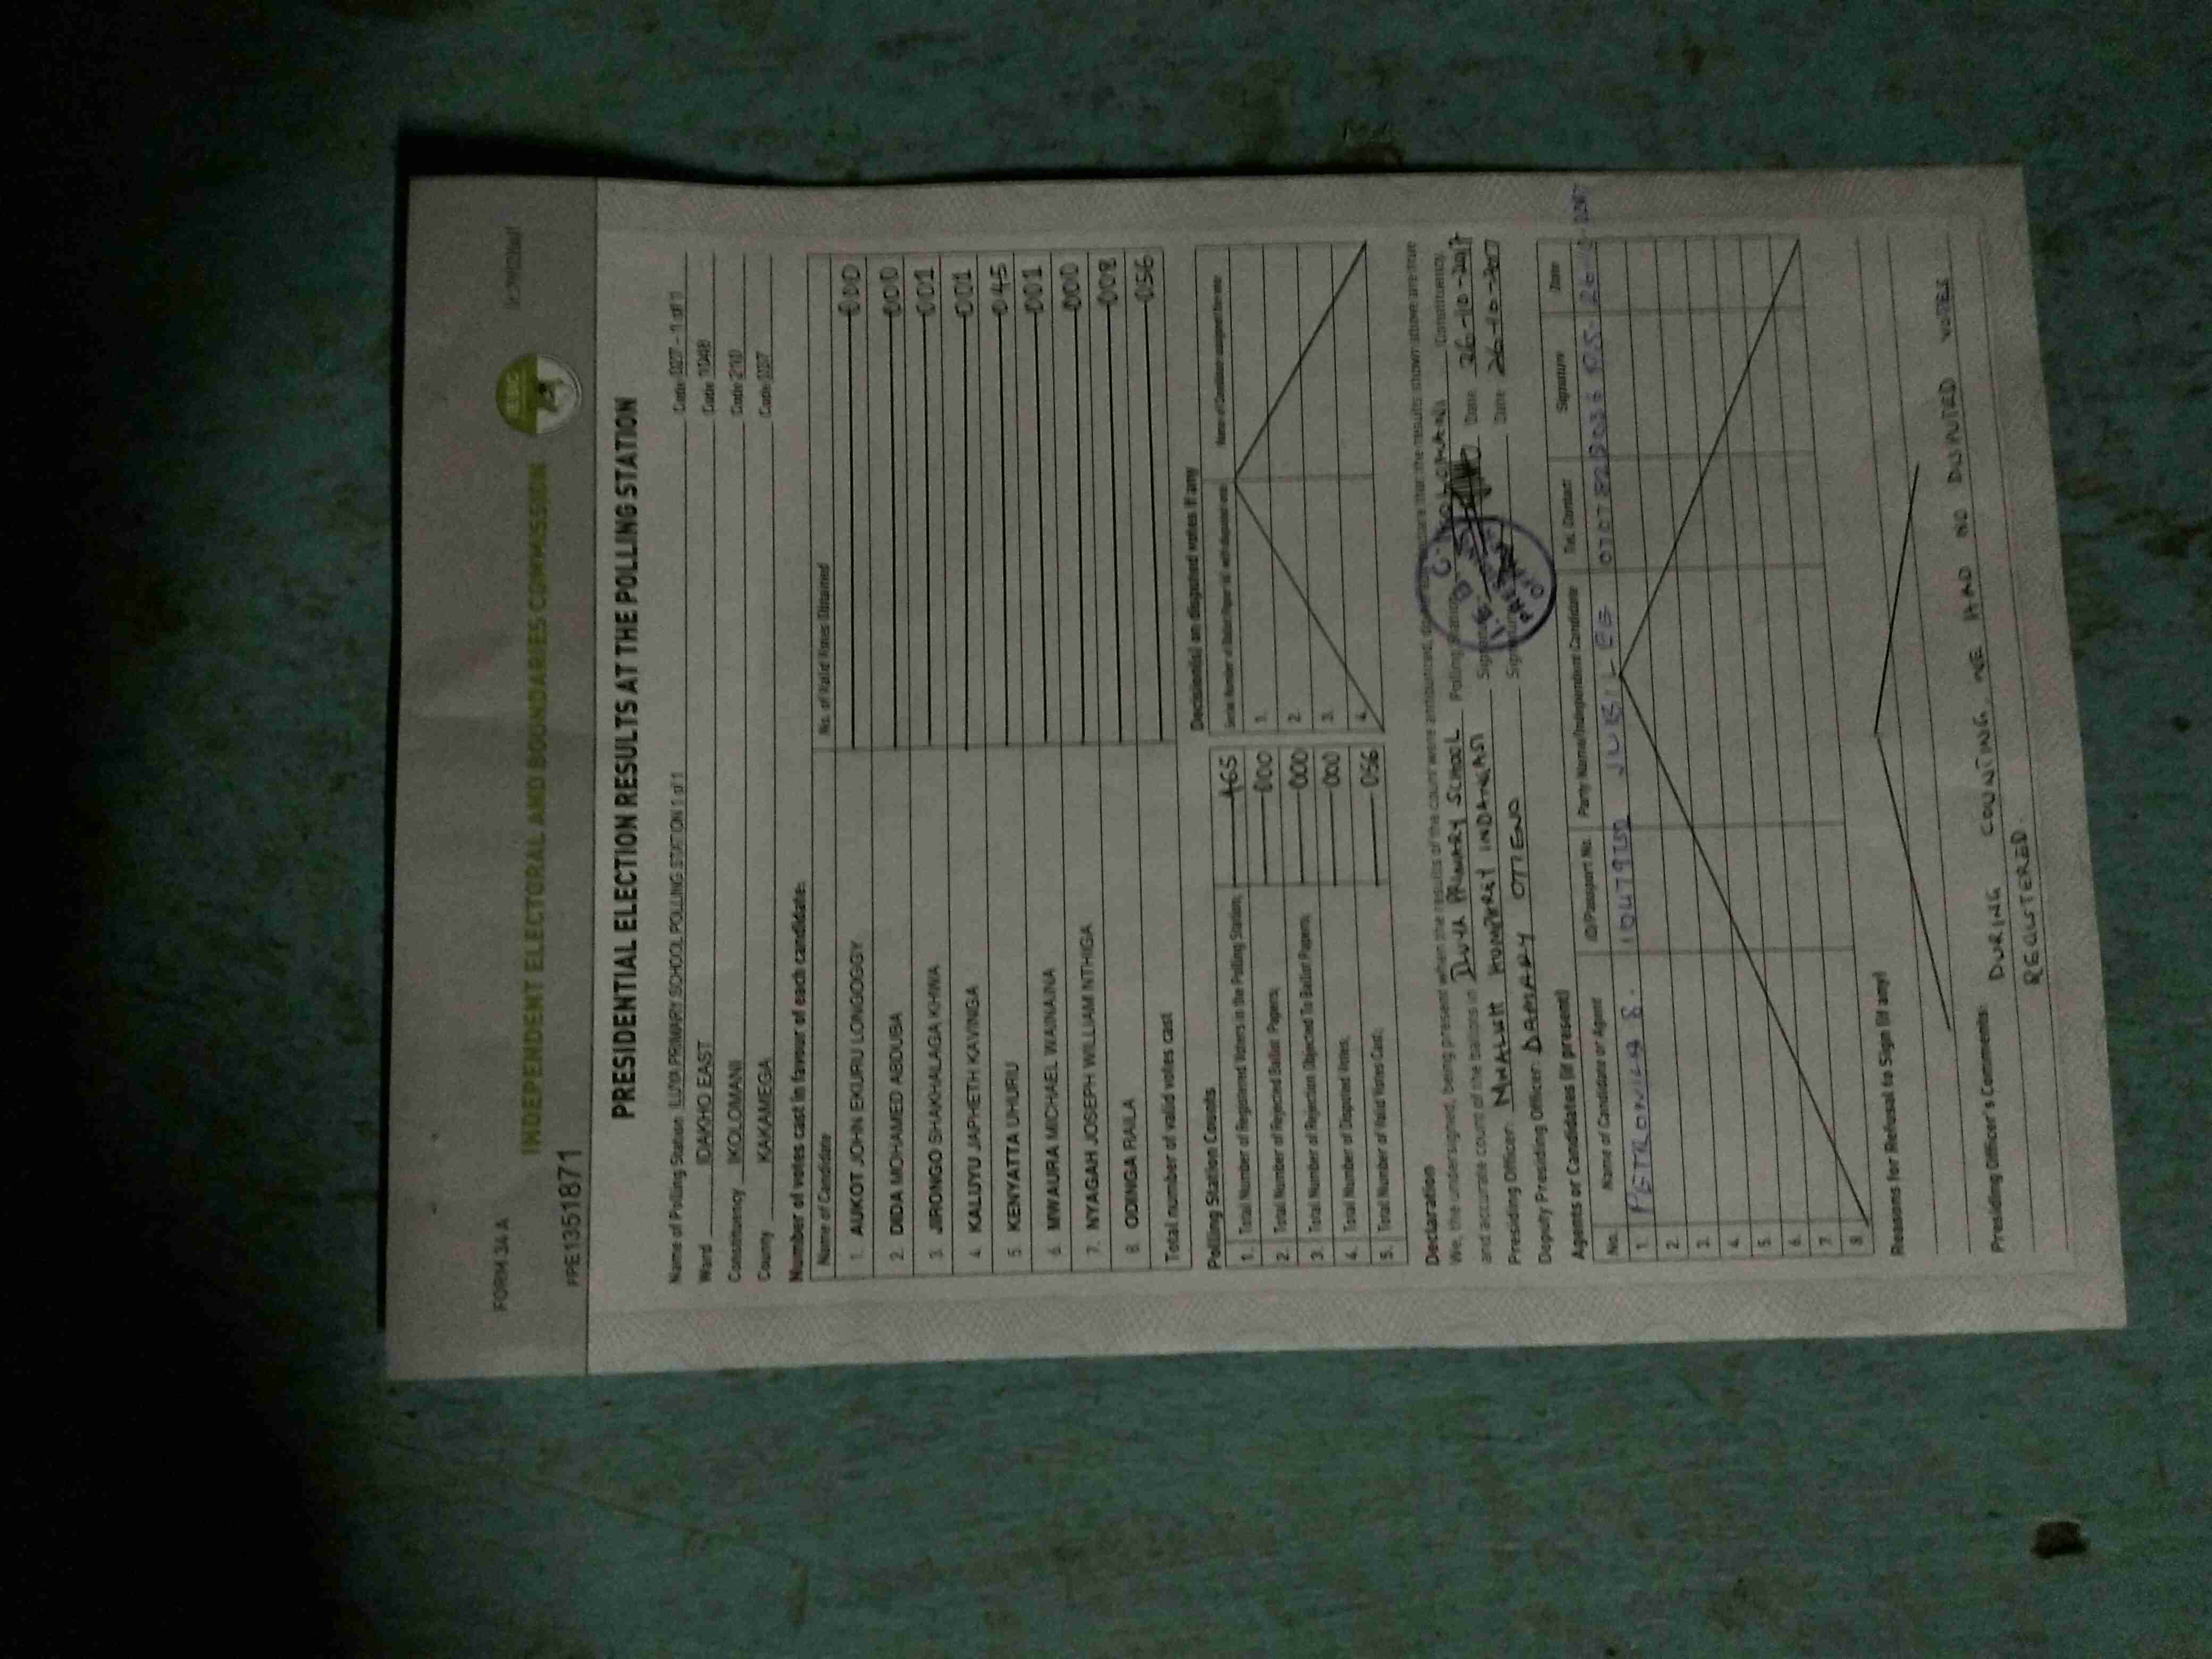 FORM 34 A
INDEPENDENT ELECTORAL AND BOUNDARIES COMMISSION
IEBC
PRE1351871
PRESIDENTIAL ELECTION RESULTS AT THE POLLING STATION
Name of Polling Station ILUYA PRIMARY SCHOOL POLLING STATION 1 of 1 Code 027 - 1 of 1
Ward IDAKHO EAST Code 1048
Constituency IKOLOMANI Code 210
County KAKAMEGA Code 037
Number of votes cast in favour of each candidate:
Name of Candidate No. of Valid Votes Obtained
1. AUKOT JOHN EKURU LONGOGGY 000
2. DIDA MOHAMED ABDUBA 000
3. JIRONGO SHAKHALAGA KHWA 001
4. KALUYU JAPHETH KAVINGA 001
5. KENYATTA UHURU 045
6. MWAURA MICHAEL WAINAINA 001
7. NYAGAH JOSEPH WILLIAM NTHIGA 000
8. ODINGA RAILA 008
Total number of valid votes cast 056
Polling Station Counts
1. Total Number of Registered Voters in the Polling Station; 465
2. Total Number of Rejected Ballot Papers; 000
3. Total Number of Rejection Objected To Ballot Papers; 000
4. Total Number of Disputed Votes; 000
5. Total Number of Valid Votes Cast; 056
Decision(s) on disputed votes if any
Serial Number of Ballot Paper(s) with disputed vote Name of Candidate assigned the vote
1.
2.
3.
4.
Declaration
We, the undersigned, being present when the results of the count were announced, do hereby declare that the results shown above are true
and accurate count of the ballots in ILUYA PRIMARY SCHOOL Polling Station, IKOLOMANI Constituency
Presiding Officer: Date 26-10-2017
Deputy Presiding Officer: DAMARY OTIENO Date 26-10-2017
Agents or Candidates (if present)
No. Name of Candidate or Agent ID/Passport No. Party Name/Independent Candidate Tel. Contact Signature Date
1. PETRONILA JUBILEE
2.
3.
4.
5.
6.
7.
8.
Reasons for Refusal to Sign (if any)
Presiding Officer's Comments: DURING COUNTING WE HAD NO DISPUTED VOTES
REGISTERED.